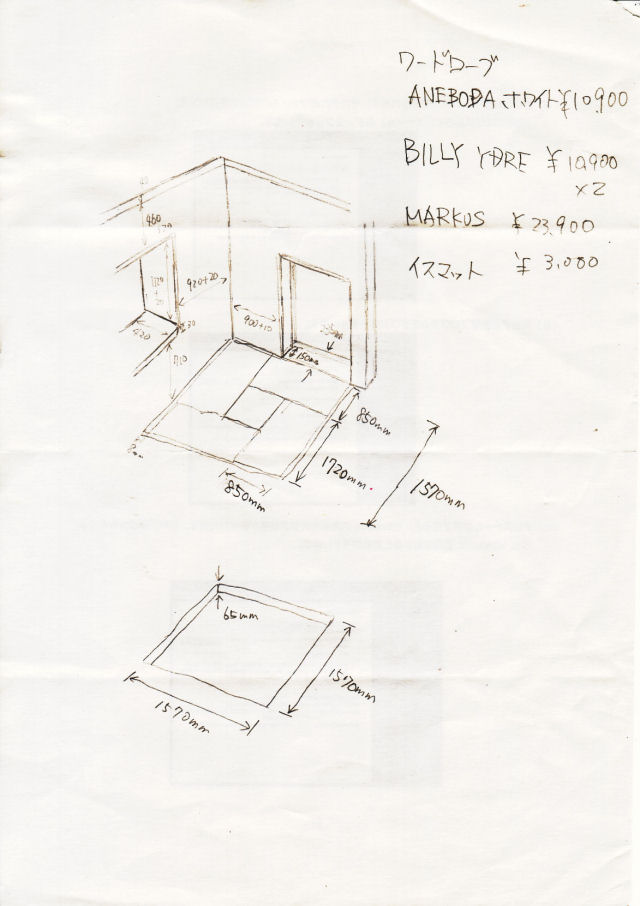 ワードローブ
ANEBODA ホワイト ¥10,900
BILLY YDRE ¥10,900
×2
MARKUS ¥23,900
イスマット ¥3,000
920+20
900+10
420
30
710
150mm
850mm
1720mm
850mm
1570mm
65mm
1570mm
1570mm